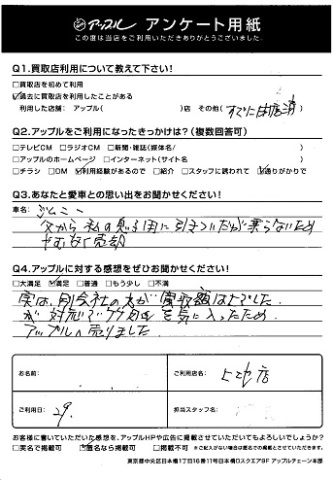 アップル アンケート用紙
この度は当店をご利用いただきありがとうございました。
Q1.買取店利用について教えて下さい!
□買取店を初めて利用
☑過去に買取店を利用したことがある
利用した店舗: アップル( )店 その他( )
Q2.アップルをご利用になったきっかけは?(複数回答可)
□テレビCM □ラジオCM □新聞・雑誌(媒体名/ )
□アップルのホームページ □インターネット(サイト名 )
□チラシ □DM ☑利用経験があるので □紹介 □スタッフに誘われて ☑通りがかりで
Q3.あなたと愛車との思い出をお聞かせください!
車名: ジムニー
父から 私の 引き
やむなく売却
Q4.アップルに対する感想をぜひお聞かせください!
□大満足 ☑満足 □普通 □もう少し □不満
実は、別会社の方が 買取額は上でした。
が 対応で 気に入ったため
アップルへ売りました。
お名前:
ご利用店名:
ご利用日: 29.
担当スタッフ名:
お客様に書いていただいた感想を、アップルHPや広告に掲載させていただいてもよろしいでしょうか?
□実名で掲載可 ☑匿名なら掲載可 □掲載不可 ※ご記入がない場合は匿名での掲載とさせていただきます。
東京都中央区日本橋1丁目16番11号日本橋Dスクエア8F アップルチェーン本部